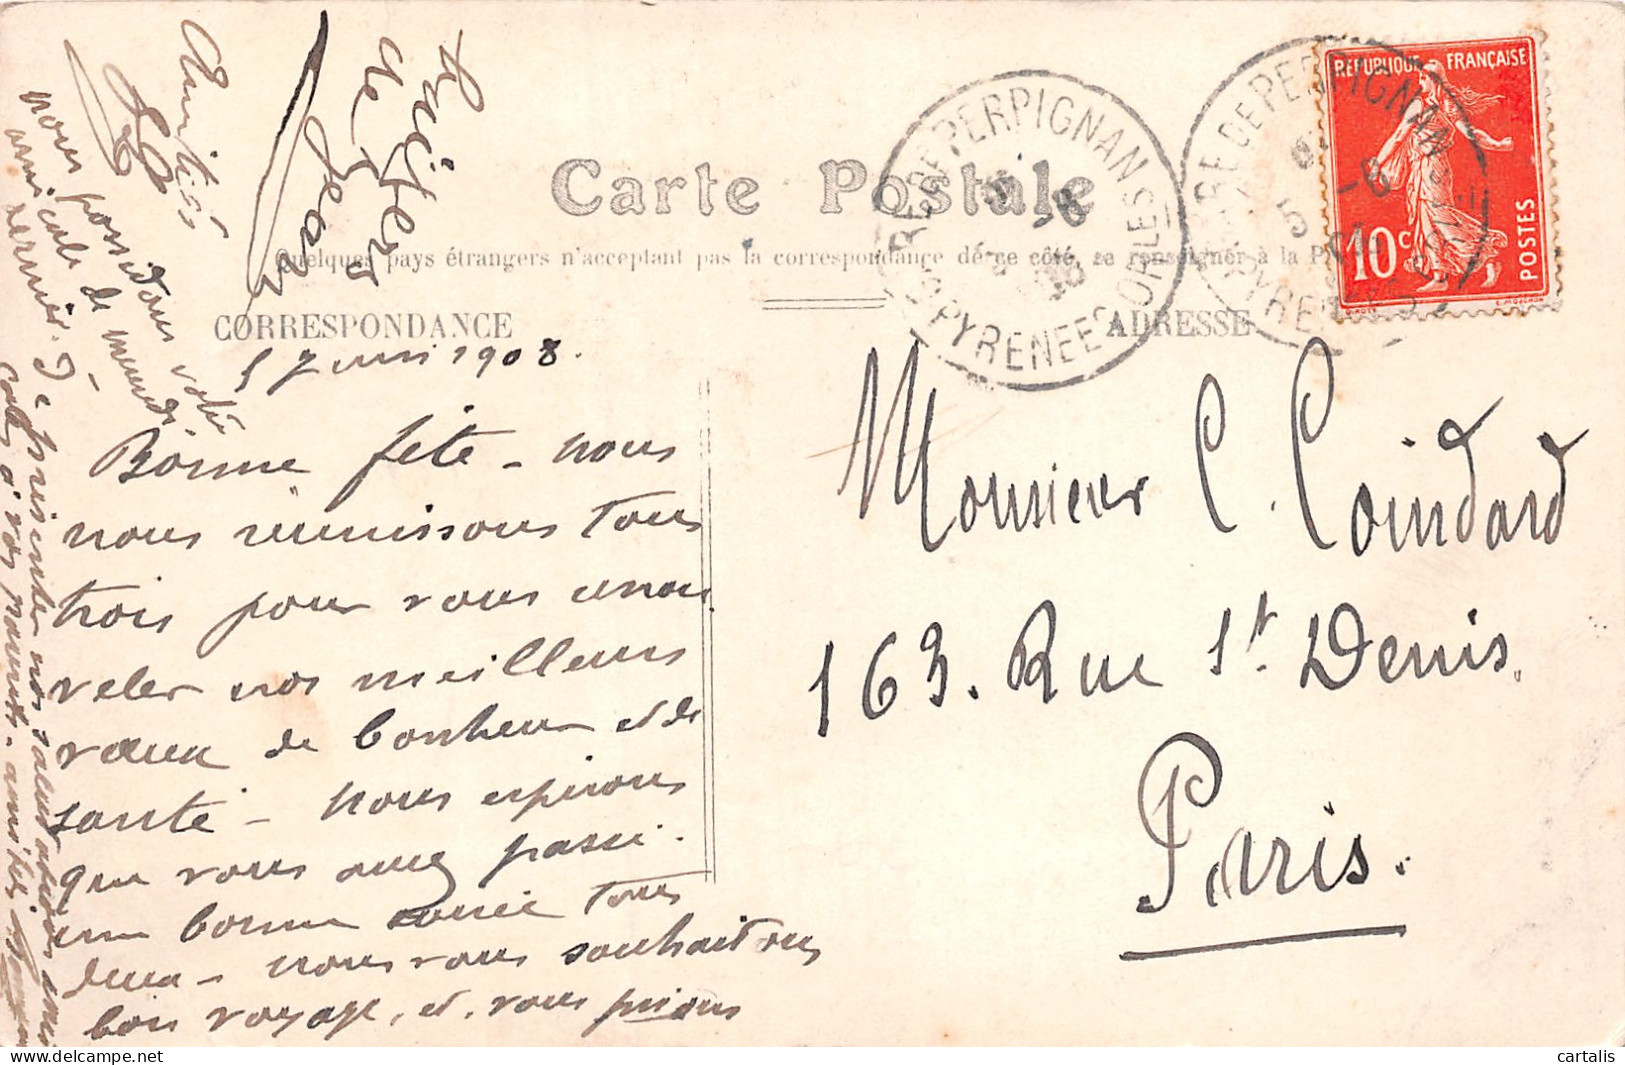 Carte Postale
Quelques pays étrangers n'acceptant pas la correspondance de ce côté, se renseigner à la
CORRESPONDANCE
ADRESSE
REPUBLIQUE FRANÇAISE
10c
POSTES
GARE DE PERPIGNAN
PYRENEES ORLES
GARE DE PERPIGNAN
PYRENEES
5 Juin 1908.
Bonne fête - nous
nous réunissons tous
trois pour vous renou
veler nos meilleurs
vœux de bonheur et de
santé - Nous espérons
que vous avez passé
une bonne soirée tous
deux - nous vous souhaitons
bon voyage, et, vous prions
de présenter nos salutations
à vos parents - amitiés
nous possédons votre
amicale de mercredi
dernier. Je
Amitiés
Monsieur C. Coindard
163. Rue St. Denis.
Paris.
cartalis